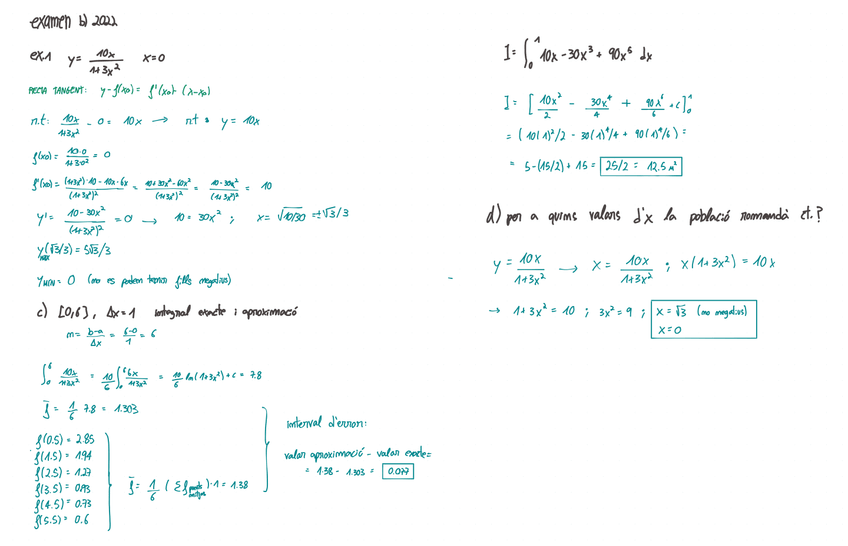 examen b) 2022
ex.1 y = 10x / 1+3x² x=0
RECTA TANGENT: y - f(x₀) = f'(x₀) · (x-x₀)
r.t: 10x / 1+3x² - 0 = 10x → r.t : y = 10x
f(x₀) = 10·0 / 1+3·0² = 0
f'(x₀) = (1+3x²)·10 - 10x·6x / (1+3x²)² = 10+30x²-60x² / (1+3x²)² = 10-30x² / (1+3x²)² = 10
y' = 10-30x² / (1+3x²)² = 0 → 10 = 30x² ; x = √10/30 = ±√3/3
y MAX (√3/3) = 5√3/3
y MIN = 0 (no es poden tenir fills negatius)
c) [0,6], Δx=1 integral exacte i aproximació
n = b-a / Δx = 6-0 / 1 = 6
∫₀⁶ 10x / 1+3x² = 10/6 ∫₀⁶ 6x / 1+3x² = 10/6 ln(1+3x²)+c = 7.8
f̄ = 1/6 7.8 = 1.303
f(0.5) = 2.85
f(1.5) = 1.94
f(2.5) = 1.27
f(3.5) = 0.93
f(4.5) = 0.73
f(5.5) = 0.6
f̄ = 1/6 (Σf punts mitjos)·1 = 1.38
interval d'error:
valor aproximació - valor exacte =
= 1.38 - 1.303 = 0.077
I = ∫₀¹ 10x - 30x³ + 90x⁵ dx
I = [10x²/2 - 30x⁴/4 + 90x⁶/6 + c]₀¹
= (10(1)²/2 - 30(1)⁴/4 + 90(1)⁶/6) =
= 5-(15/2) + 15 = 25/2 = 12.5 u²
d) per a quins valors d'x la població romandrà ct.?
y = 10x / 1+3x² → x = 10x / 1+3x² ; x(1+3x²) = 10x
→ 1+3x² = 10 ; 3x² = 9 ; x = √3 (no negatius)
x = 0